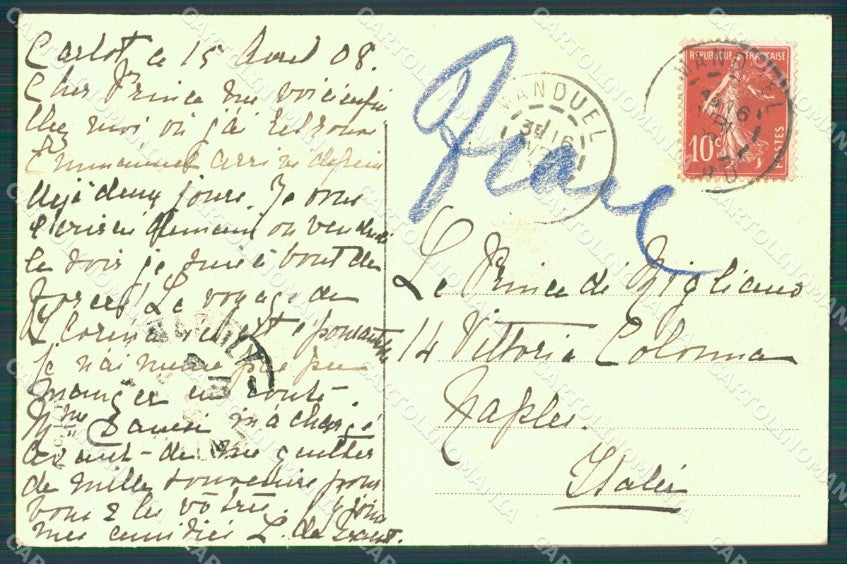 Carlot ce 15 Avril 08.
Cher Prince me voici enfin
chez moi où j'ai retrouvé
Emmanuel arrivé depuis
déjà deux jours. Je vous
écrirai demain ou vendredi
ce soir je suis à bout de
forces! Le voyage de
je n'ai même pas pu
manger en route.
Mme m'a chargé
avant de me quitter
de mille souvenirs pour
vous & les vôtres. J'y joins
mes amitiés L. de
MANDUEL
16
REPUBLIQUE FRANÇAISE
10c
POSTES
MANDUEL
16
Le Prince di Migliano
14 Vittoria Colonna
Naples.
Italie
CARTOLINOMANIA